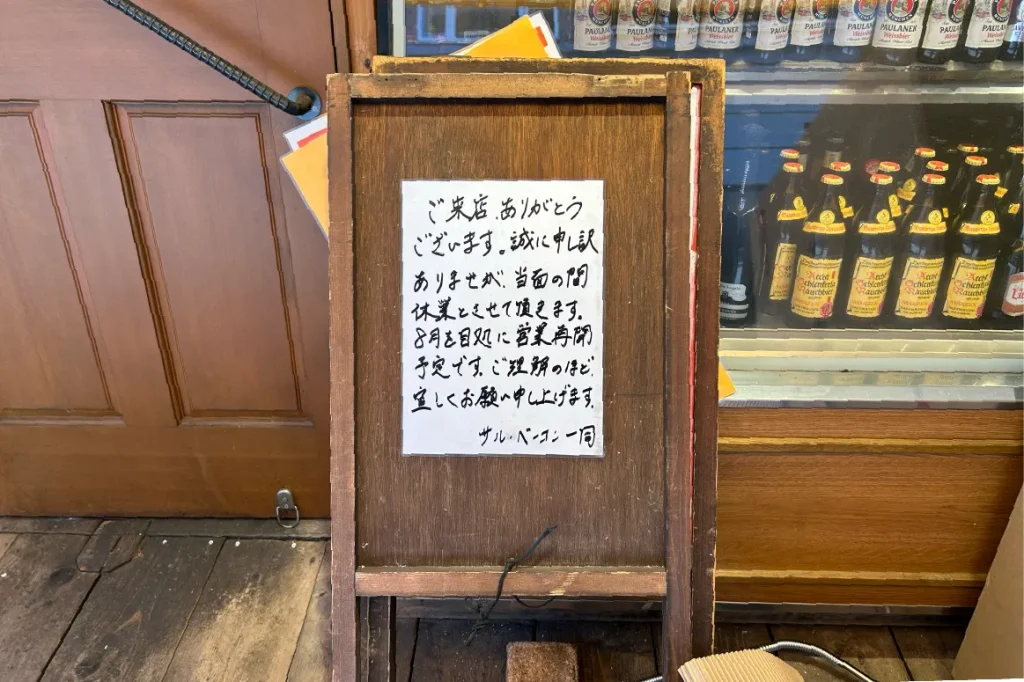 ご来店、ありがとう
ございます。誠に申し訳
ありませが、当面の間
休業とさせて頂きます。
8月を目処に営業再開
予定です。ご理解のほど、
宜しくお願い申し上げます。
サル・ベーコン一同
PAULANER
Weissbier
PAULANER
Weissbier
PAULANER
Weissbier
PAULANER
PAULANER
PAULANER
PAULANER
PAULANER
PAULANER
Aecht
Schlenferla
Rauchbier
Aecht
Schlenferla
Rauchbier
Aecht
Schlenferla
Rauchbier
Aecht
Schlenferla
Rauchbier